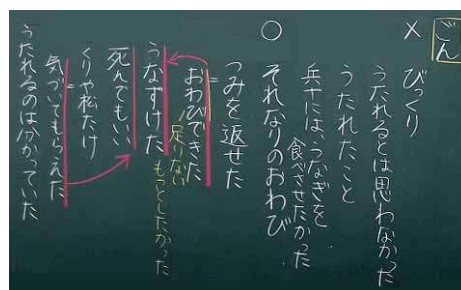 ごん
×
びっくり
うたれるとは思わなかった
うたれたこと
兵十には、うなぎを
食べさせたかった
○
それなりのおわび
つみを返せた
おわびできた
足りない
もっとしたかった
うなずけた
死んでもいい
くりや松たけ
気づいてもらえた
うたれるのは分かっていた